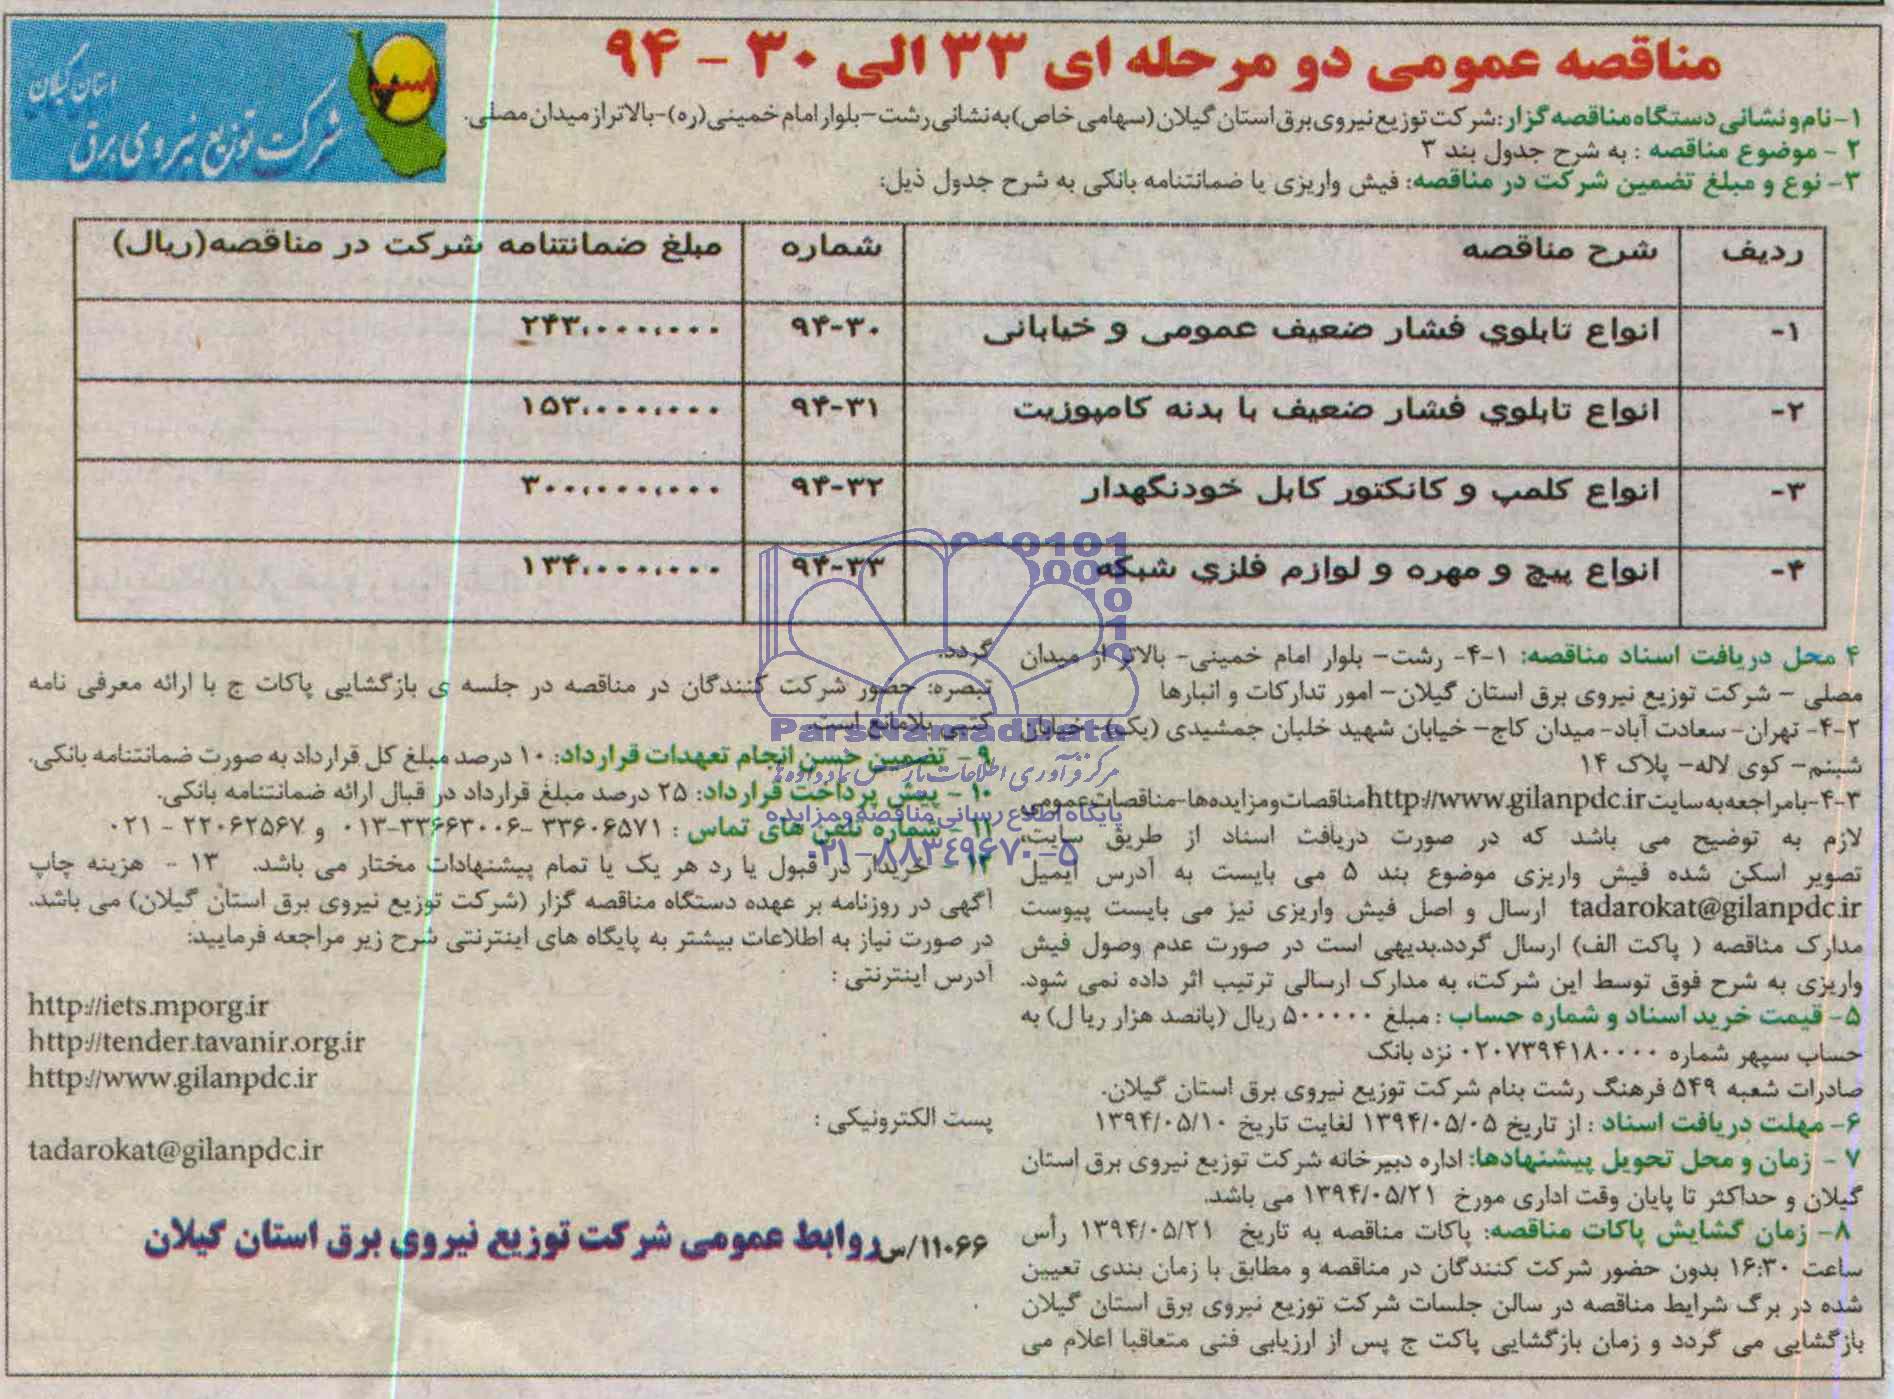 مناقصه عمومی دو مرحله ای ۳۳ الی ۳۰ - ۹۴
استان گیلان
شرکت توزیع نیروی برق
۱-نام و نشانی دستگاه مناقصه گزار: شرکت توزیع نیروی برق استان گیلان (سهامی خاص) به نشانی رشت – بلوار امام خمینی (ره)- بالاتر از میدان مصلی.
۲ - موضوع مناقصه : به شرح جدول بند ۳
۳- نوع و مبلغ تضمین شرکت در مناقصه: فیش واریزی یا ضمانتنامه بانکی به شرح جدول ذیل:
ردیف شرح مناقصه شماره مبلغ ضمانتنامه شرکت در مناقصه(ریال)
۱- انواع تابلوي فشار ضعیف عمومی و خیابانی ۹۴-۳۰ ۲۴۳،۰۰۰،۰۰۰
۲- انواع تابلوي فشار ضعیف با بدنه کامپوزیت ۹۴-۳۱ ۱۵۳،۰۰۰،۰۰۰
۳- انواع کلمپ و کانکتور کابل خودنگهدار ۹۴-۳۲ ۳۰۰،۰۰۰،۰۰۰
۴- انواع پیچ و مهره و لوازم فلزي شبکه ۹۴-۳۳ ۱۳۴،۰۰۰،۰۰۰
۴ محل دریافت اسناد مناقصه: ۱-۴- رشت– بلوار امام خمینی- بالاتر از میدان
مصلی – شرکت توزیع نیروی برق استان گیلان- امور تدارکات و انبارها
۲-۴- تهران- سعادت آباد- میدان کاج– خیابان شهید خلبان جمشیدی (یکم)- خیابان
شبنم– کوی لاله– پلاک ۱۴
۳-۴-با مراجعه به سایت http://www.gilanpdc.ir مناقصات و مزایده ها-مناقصات عمومی
لازم به توضیح می باشد که در صورت دریافت اسناد از طریق سایت،
تصویر اسکن شده فیش واریزی موضوع بند ۵ می بایست به آدرس ایمیل
tadarokat@gilanpdc.ir ارسال و اصل فیش واریزی نیز می بایست پیوست
مدارک مناقصه ( پاکت الف) ارسال گردد.بدیهی است در صورت عدم وصول فیش
واریزی به شرح فوق توسط این شرکت، به مدارک ارسالی ترتیب اثر داده نمی شود.
۵- قیمت خرید اسناد و شماره حساب : مبلغ ۵۰۰۰۰۰ ریال (پانصد هزار ریا ل) به
حساب سپهر شماره ۰۲۰۷۳۹۴۱۸۰۰۰۰ نزد بانک
صادرات شعبه ۵۴۹ فرهنگ رشت بنام شرکت توزیع نیروی برق استان گیلان.
۶- مهلت دریافت اسناد : از تاریخ ۱۳۹۴/۰۵/۰۵ لغایت تاریخ ۱۳۹۴/۰۵/۱۰
۷ - زمان و محل تحویل پیشنهادها: اداره دبیرخانه شرکت توزیع نیروی برق استان
گیلان و حداکثر تا پایان وقت اداری مورخ ۱۳۹۴/۰۵/۲۱ می باشد.
۸- زمان گشایش پاکات مناقصه: پاکات مناقصه به تاریخ ۱۳۹۴/۰۵/۲۱ رأس
ساعت ۱۶:۳۰ بدون حضور شرکت کنندگان در مناقصه و مطابق با زمان بندی تعیین
شده در برگ شرایط مناقصه در سالن جلسات شرکت توزیع نیروی برق استان گیلان
بازگشایی می گردد و زمان بازگشایی پاکت ج پس از ارزیابی فنی متعاقبا اعلام می
گردد.
تبصره: حضور شرکت کنندگان در مناقصه در جلسه ی بازگشایی پاکات ج با ارائه معرفی نامه
کتبی بلامانع است.
۹ - تضمین حسن انجام تعهدات قرارداد: ۱۰ درصد مبلغ کل قرارداد به صورت ضمانتنامه بانکی.
۱۰ - پیش پرداخت قرارداد: ۲۵ درصد مبلغ قرارداد در قبال ارائه ضمانتنامه بانکی.
۱۱ - شماره تلفن های تماس : ۳۳۶۰۶۵۷۱ -۳۳۶۶۳۰۰۶-۰۱۳ و ۲۲۰۶۲۵۶۷ - ۰۲۱
۱۲ - خریدار در قبول یا رد هر یک یا تمام پیشنهادات مختار می باشد. ۱۳ - هزینه چاپ
آگهی در روزنامه بر عهده دستگاه مناقصه گزار (شرکت توزیع نیروی برق استان گیلان) می باشد.
در صورت نیاز به اطلاعات بیشتر به پایگاه های اینترنتی شرح زیر مراجعه فرمایید:
آدرس اینترنتی :
http://iets.mporg.ir
http://tender.tavanir.org.ir
http://www.gilanpdc.ir
پست الکترونیکی :
tadarokat@gilanpdc.ir
۱۱۰۶۶/س روابط عمومی شرکت توزیع نیروی برق استان گیلان
ParsNamadData
مرکز فرآوری اطلاعات پارس نماد داده ها
پایگاه اطلاع رسانی مناقصه و مزایده
۰۲۱-۸۸۳۴۹۶۷۰-۵